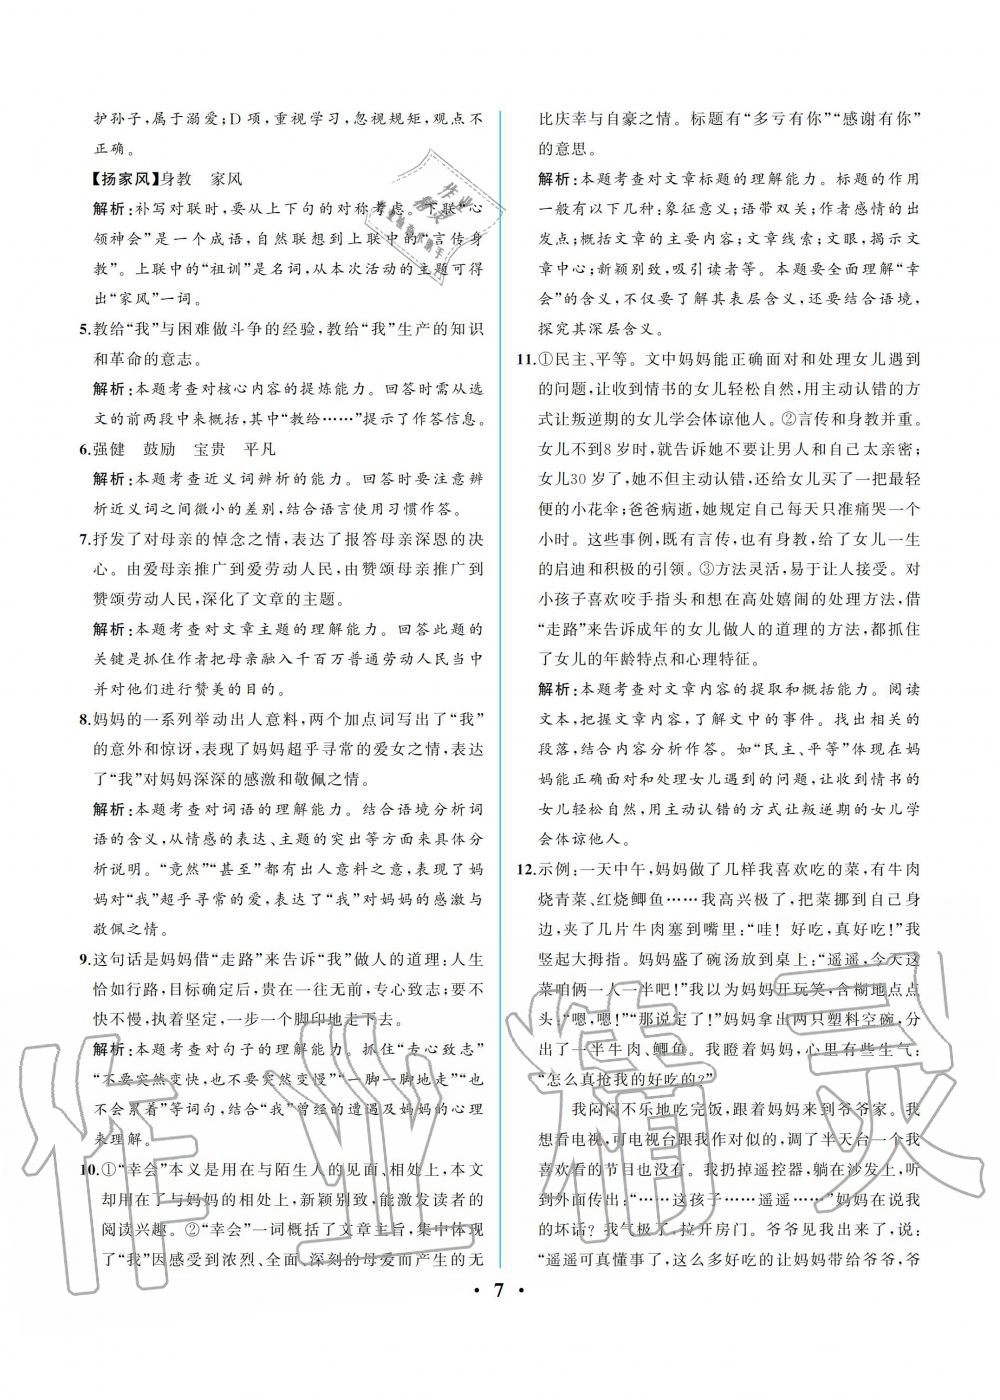 护孙子,属于溺爱;D项,重视学习,忽视规矩,观点不
正确。
【扬家风】身教 家风
解析:补写对联时,要从上下句的对称考虑。下联“心
领神会”是一个成语,自然联想到上联中的“言传身
教”。上联中的“祖训”是名词,从本次活动的主题可得
出“家风”一词。
5.教给“我”与困难做斗争的经验,教给“我”生产的知识
和革命的意志。
解析:本题考查对核心内容的提炼能力。回答时需从选
文的前两段中来概括,其中“教给……”提示了作答信息。
6.强健 鼓励 宝贵 平凡
解析:本题考查近义词辨析的能力。回答时要注意辨
析近义词之间微小的差别,结合语言使用习惯作答。
7.抒发了对母亲的悼念之情,表达了报答母亲深恩的决
心。由爱母亲推广到爱劳动人民,由赞颂母亲推广到
赞颂劳动人民,深化了文章的主题。
解析:本题考查对文章主题的理解能力。回答此题的
关键是抓住作者把母亲融入千百万普通劳动人民当中
并对他们进行赞美的目的。
8.妈妈的一系列举动出人意料,两个加点词写出了“我”
的意外和惊讶,表现了妈妈超乎寻常的爱女之情,表达
了“我”对妈妈深深的感激和敬佩之情。
解析:本题考查对词语的理解能力。结合语境分析词
语的含义,从情感的表达、主题的突出等方面来具体分
析说明。“竟然”“甚至”都有出人意料之意,表现了妈
妈对“我”超乎寻常的爱,表达了“我”对妈妈的感激与
敬佩之情。
9.这句话是妈妈借“走路”来告诉“我”做人的道理:人生
恰如行路,目标确定后,贵在一往无前,专心致志;要不
快不慢,执着坚定,一步一个脚印地走下去。
解析:本题考查对句子的理解能力。抓住“专心致志”
“不要突然变快,也不要突然变慢”“一脚一脚地走”“也
不会累着”等词句,结合“我”曾经的遭遇及妈妈的心理
来理解。
10.①“幸会”本义是用在与陌生人的见面、相处上,本文
却用在了与妈妈的相处上,新颖别致,能激发读者的
阅读兴趣。②“幸会”一词概括了文章主旨,集中体现
了“我”因感受到浓烈、全面、深刻的母爱而产生的无
比庆幸与自豪之情。标题有“多亏有你”“感谢有你”
的意思。
解析:本题考查对文章标题的理解能力。标题的作用
一般有以下几种:象征意义;语带双关;作者感情的出
发点;概括文章的主要内容;文章线索;文眼,揭示文
章中心;新颖别致,吸引读者等。本题要全面理解“幸
会”的含义,不仅要了解其表层含义,还要结合语境,
探究其深层含义。
11.①民主、平等。文中妈妈能正确面对和处理女儿遇到
的问题,让收到情书的女儿轻松自然,用主动认错的方
式让叛逆期的女儿学会体谅他人。②言传和身教并重。
女儿不到8岁时,就告诉她不要让男人和自己太亲密;
女儿30岁了,她不但主动认错,还给女儿买了一把最轻
便的小花伞;爸爸病逝,她规定自己每天只准痛哭一个
小时。这些事例,既有言传,也有身教,给了女儿一生
的启迪和积极的引领。③方法灵活,易于让人接受。对
小孩子喜欢咬手指头和想在高处嬉闹的处理方法,借
“走路”来告诉成年的女儿做人的道理的方法,都抓住
了女儿的年龄特点和心理特征。
解析:本题考查对文章内容的提取和概括能力。阅读
文本,把握文章内容,了解文中的事件。找出相关的
段落,结合内容分析作答。如“民主、平等”体现在妈
妈能正确面对和处理女儿遇到的问题,让收到情书的
女儿轻松自然,用主动认错的方式让叛逆期的女儿学
会体谅他人。
12.示例:一天中午,妈妈做了几样我喜欢吃的菜,有牛肉
烧青菜、红烧鲫鱼……我高兴极了,把菜挪到自己身
边,夹了几片牛肉塞到嘴里:“哇!好吃,真好吃!”我
竖起大拇指。妈妈盛了碗汤放到桌上:“遥遥,今天这
菜咱俩一人一半吧!”我以为妈妈开玩笑,含糊地点点
头:“嗯,嗯!”“那说定了!”妈妈拿出两只塑料空碗,分
出了一半牛肉、鲫鱼。我瞪着妈妈,心里有些生气:
“怎么真抢我的好吃的?”
我闷闷不乐地吃完饭,跟着妈妈来到爷爷家。我
想看电视,可电视台跟我作对似的,调了半天台一个我
喜欢看的节目也没有。我扔掉遥控器,躺在沙发上,听
到外面传出:“……这孩子……遥遥……”妈妈在说我
的坏话?我气极了,拉开房门。爷爷见我出来了,说:
“遥遥可真懂事了,这么多好吃的让妈妈带给爷爷,爷
·7·
作业精灵
作业
精灵